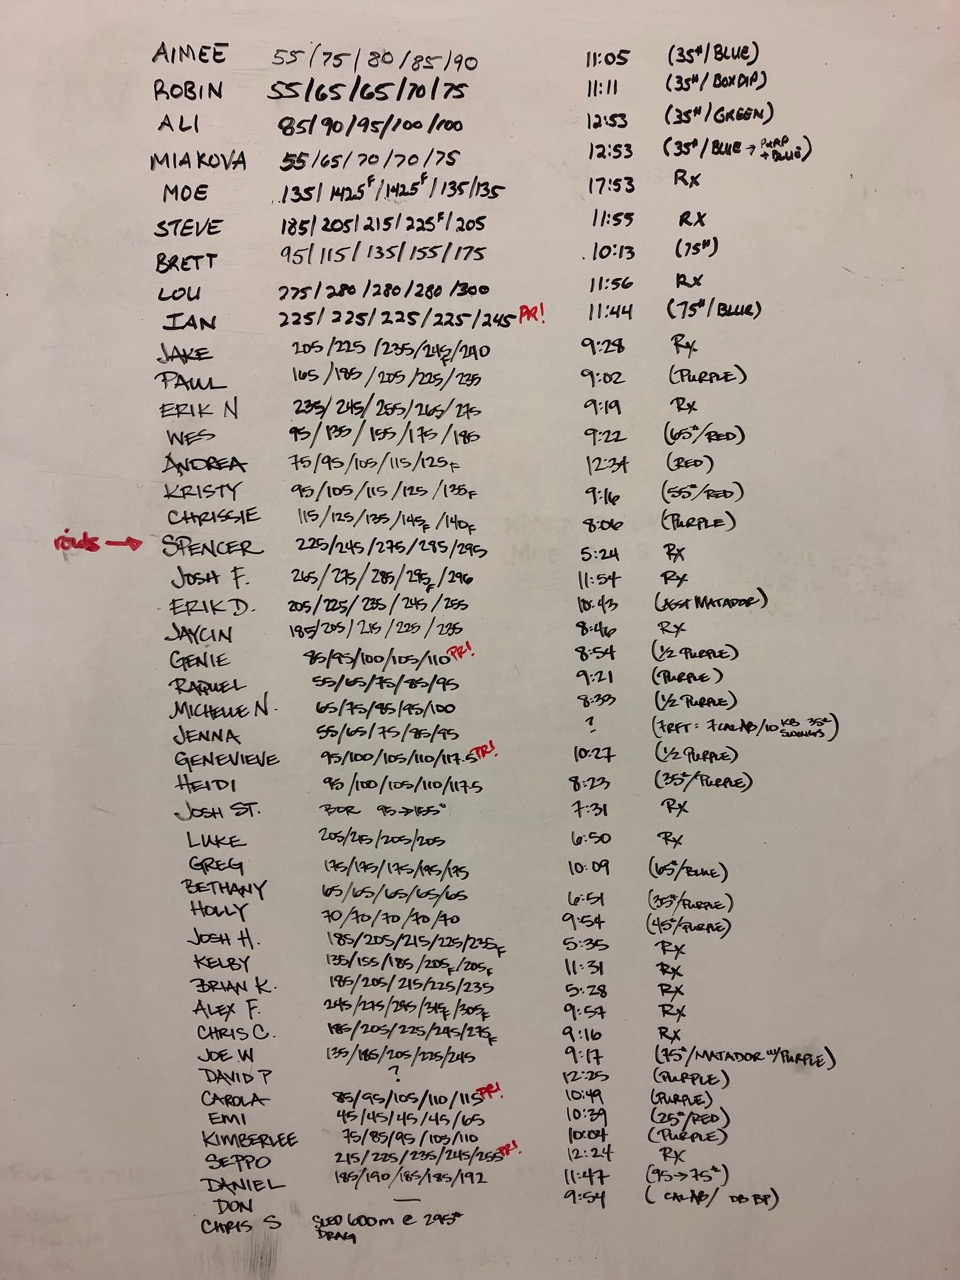 AIMEE 55/75/80/85/90 11:05 (35#/BLUE)
ROBIN 55/65/65/70/75 11:11 (35#/BOXDIP)
ALI 85/90/95/100/100 12:53 (35#/GREEN)
MIAKOVA 55/65/70/70/75 12:53 (35#/BLUE → PURP + BLUE)
MOE 135/1425F/1425F/135/135 17:53 Rx
STEVE 185/205/215/225F/205 11:55 Rx
BRETT 95/115/135/155/175 10:13 (75#)
LOU 275/280/280/280/300 11:56 Rx
IAN 225/225/225/225/245 PR! 11:44 (75#/BLUE)
JAKE 205/225/235/245F/240 9:28 Rx
PAUL 165/185/205/225/235 9:02 (PURPLE)
ERIK N 235/245/255/265/275 9:19 Rx
WES 95/135/155/175/185 9:22 (65#/RED)
ANDREA 75/95/105/115/125F 12:34 (RED)
KRISTY 95/105/115/125/135F 9:16 (55#/RED)
CHRISSIE 115/125/135/145F/140F 8:06 (PURPLE)
→ SPENCER 225/245/275/285/295 5:24 Rx
JOSH F. 265/275/285/295F/296 11:54 Rx
ERIK D. 205/225/235/245/255 10:43 (ASST MATADOR)
JAYCIN 185/205/215/225/235 8:46 Rx
GENIE 85/95/100/105/110 PR! 8:54 (1/2 PURPLE)
RAQUEL 55/65/75/85/95 9:21 (PURPLE)
MICHELLE N. 65/75/85/95/100 8:33 (1/2 PURPLE)
JENNA 55/65/75/85/95 ? (7RFT: 7CALAB/10 KB 35# SWINGS)
GENEVIEVE 95/100/105/110/117.5 PR! 10:27 (1/2 PURPLE)
HEIDI 95/100/105/110/117.5 8:23 (35#/PURPLE)
JOSH ST. BOR 95→155# 7:31 Rx
LUKE 205/215/205/205 6:50 Rx
GREG 175/175/175/175/175 10:09 (65#/BLUE)
BETHANY 65/65/65/65/65 6:51 (35#/PURPLE)
HOLLY 70/70/70/70/70 9:54 (45#/PURPLE)
JOSH H. 185/205/215/225/235F 5:35 Rx
KELBY 135/155/185/205F/205F 11:31 Rx
BRIAN K. 185/205/215/225/235 5:28 Rx
ALEX F. 245/275/295/315F/305F 9:57 Rx
CHRIS C. 185/205/225/245/275F 9:16 Rx
JOE W 135/185/205/225/245 9:17 (75#/MATADOR w/PURPLE)
DAVID P ? 12:25 (PURPLE)
CAROLA 85/95/105/110/115 PR! 10:49 (PURPLE)
EMI 45/45/45/45/65 10:39 (25#/RED)
KIMBERLEE 75/85/95/105/110 10:04 (PURPLE)
SEPPO 215/225/235/245/255 PR! 12:24 Rx
DANIEL 185/190/185/185/192 11:47 (95→75#)
DON — 9:54 (CALAB/DB BP)
CHRIS S SLED 600m @ 295#
DRAG